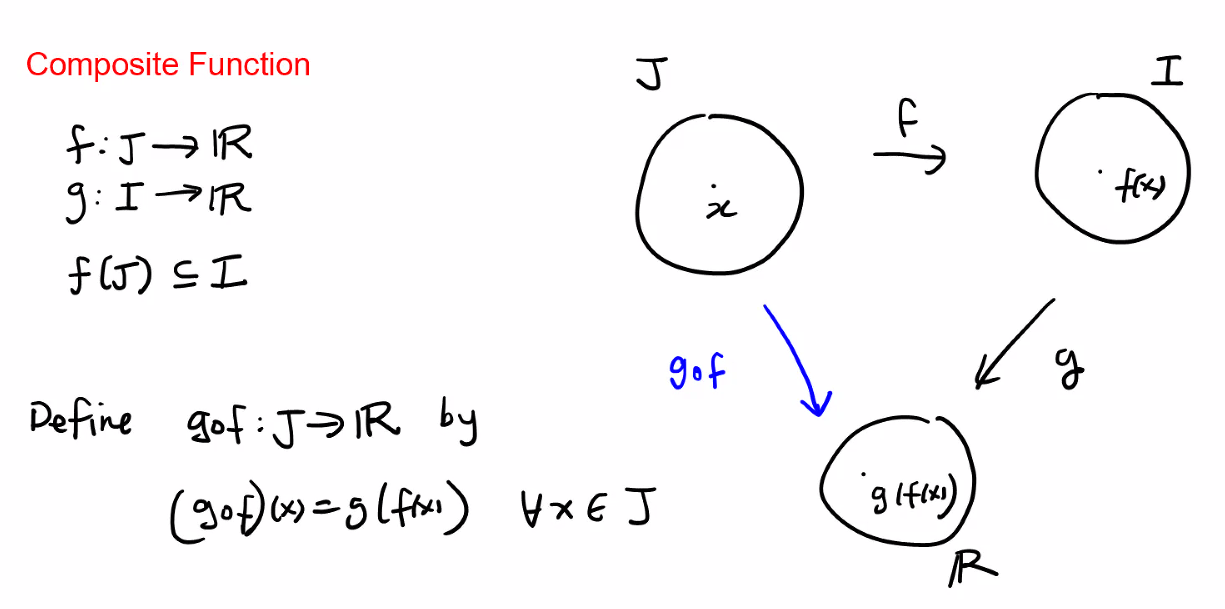 Composite Function
f : J → ℝ
g : I → ℝ
f(J) ⊆ I
Define g∘f : J → ℝ by
(g∘f)(x) = g(f(x)) ∀x ∈ J
J
f
I
x
f(x)
g∘f
g
g(f(x))
ℝ